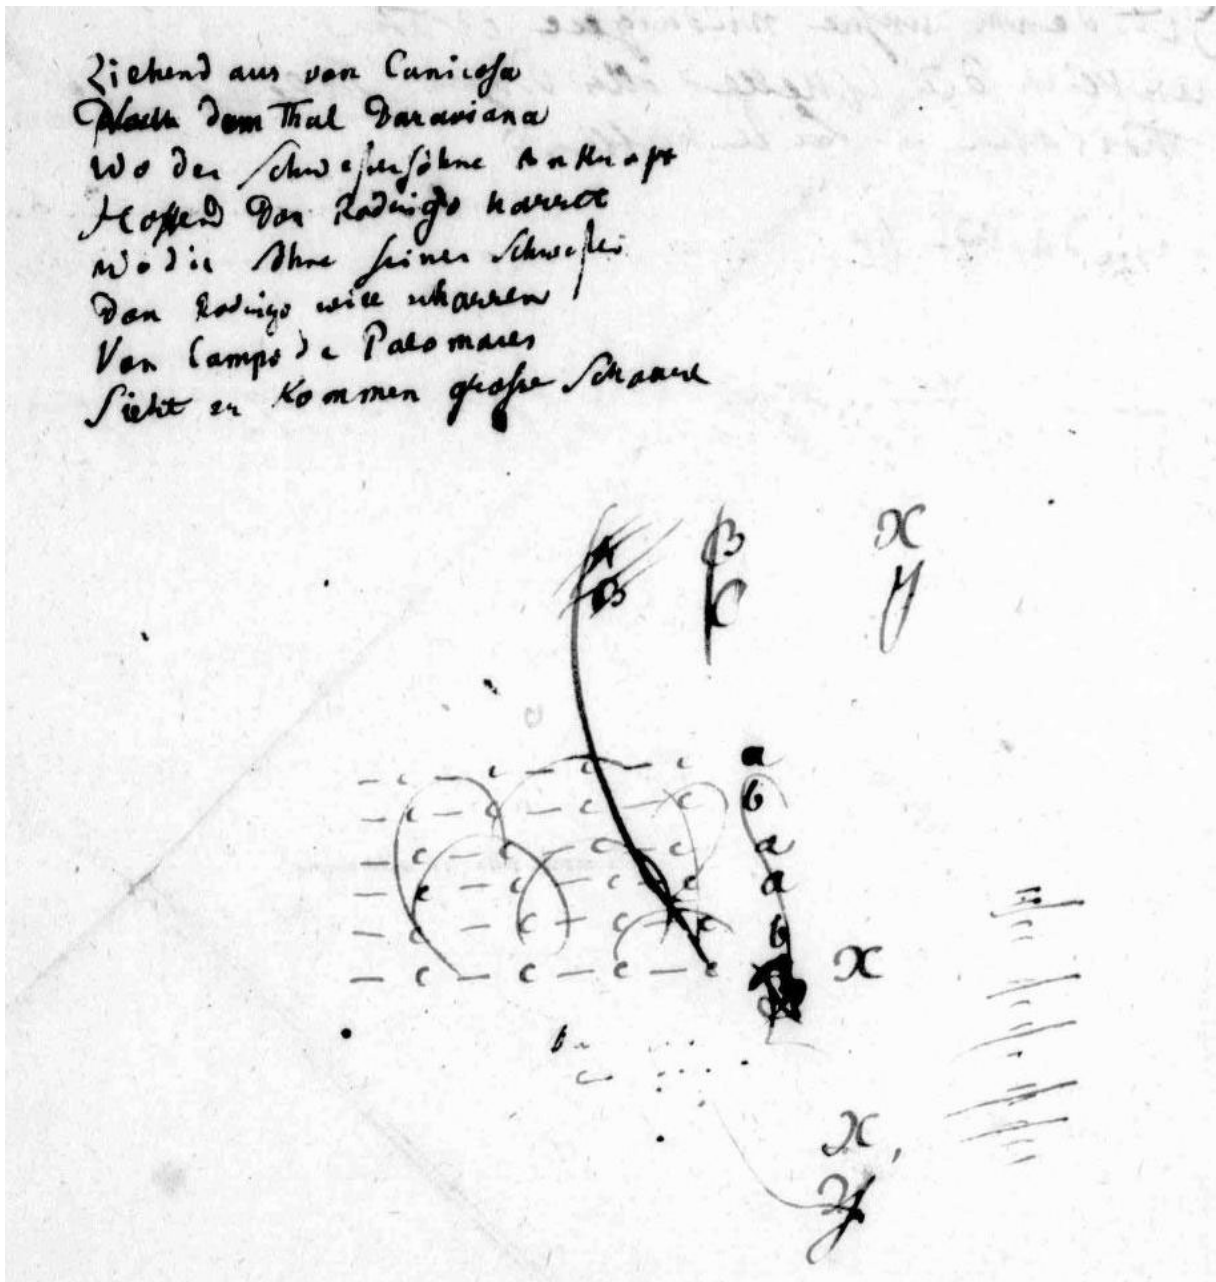 Ziehend aus von Canicosa
Nach dem Thal Daraviana
Wo der Schwestersöhne Ankunft
Hoffend Don Rodrigo harret
Wo die Söhne seiner Schwester
Don Rodrigo will erharren
Von Campo de Palomares
Sieht er kommen große Schaaren
A B X
B C Y
— c — c — c — c a
— c — c — c b
— c — c — c — c a
— c — c — c — c a
— c — c — c — c b
— c — c — c — c X
X,
Y